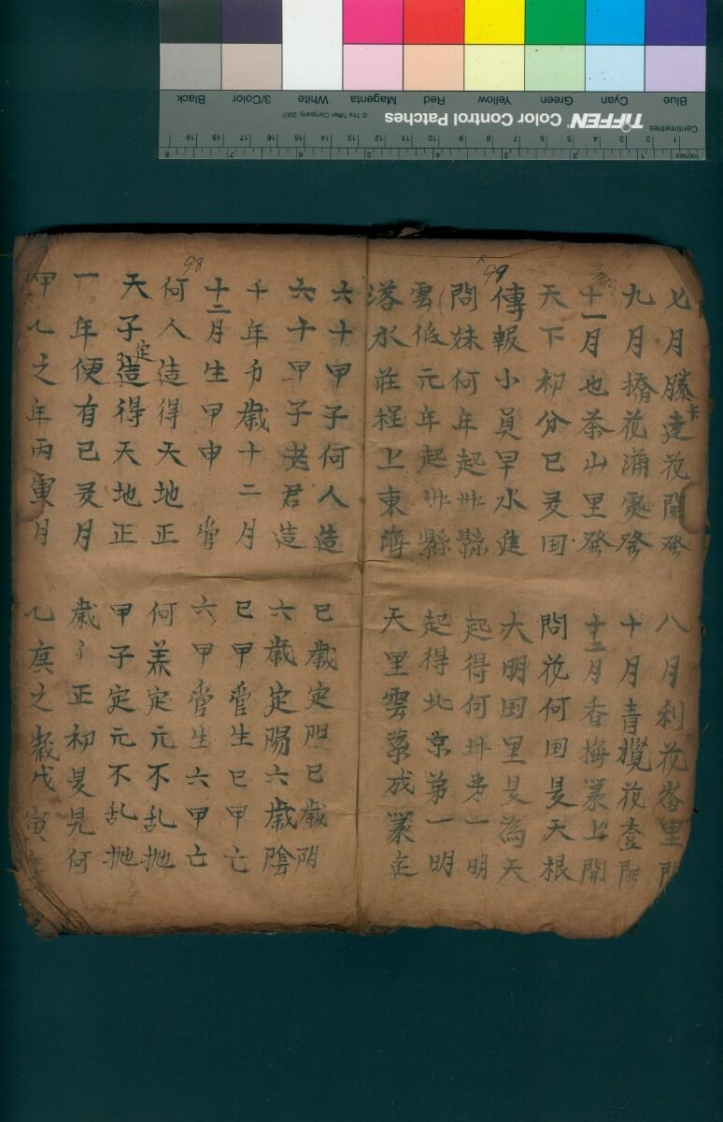 Blue Cyan Green Yellow Red Magenta White 3/Color Black
TIFFEN Color Control Patches
© The Tiffen Company, 2007
Centimetres
Inches
99
98
七月滕達花開發
八月利花峇里開
九月搭花滿處發
十月青榄花查開
十一月也茶山里發
十二月香梅叢上開
天下初分已是囯
問花何囯是天根
傳報小員早水進
大明囯里是為天
問妹何年起州縣
起得何州第一明
雲低元年起州縣
起得北京第一明
落水莊桯上東海
天里雲蒙成叢
六十甲子何人造
巳歲定陽巳歲陰
六十甲子老君造
六歲定陽六歲陰
千年万歲十二月
巳甲管生巳甲亡
十二月生甲申管
六甲管生六甲亡
何人造得天地正
何羕定元不乱拋
天子定造得天地正
甲子定元不乱拋
一年便有已是月
歲了正初是見何
甲乙之年丙寅月
乙庚之歲戊寅